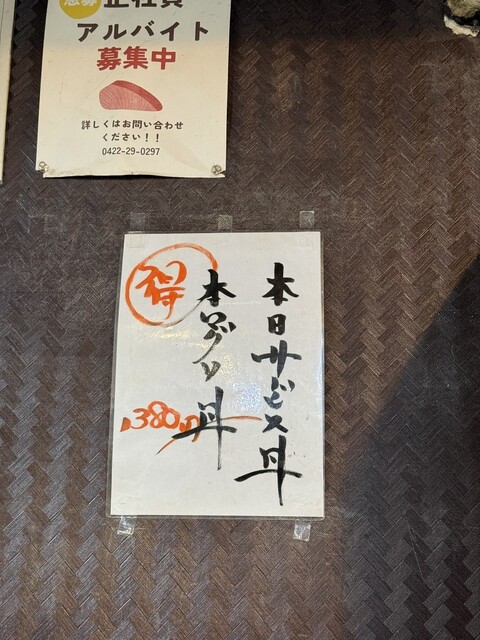 急募
正社員
アルバイト
募集中
詳しくはお問い合わせ
ください!!
0422-29-0297
本日サービス丼
本マグロブツ丼
得
1,380円